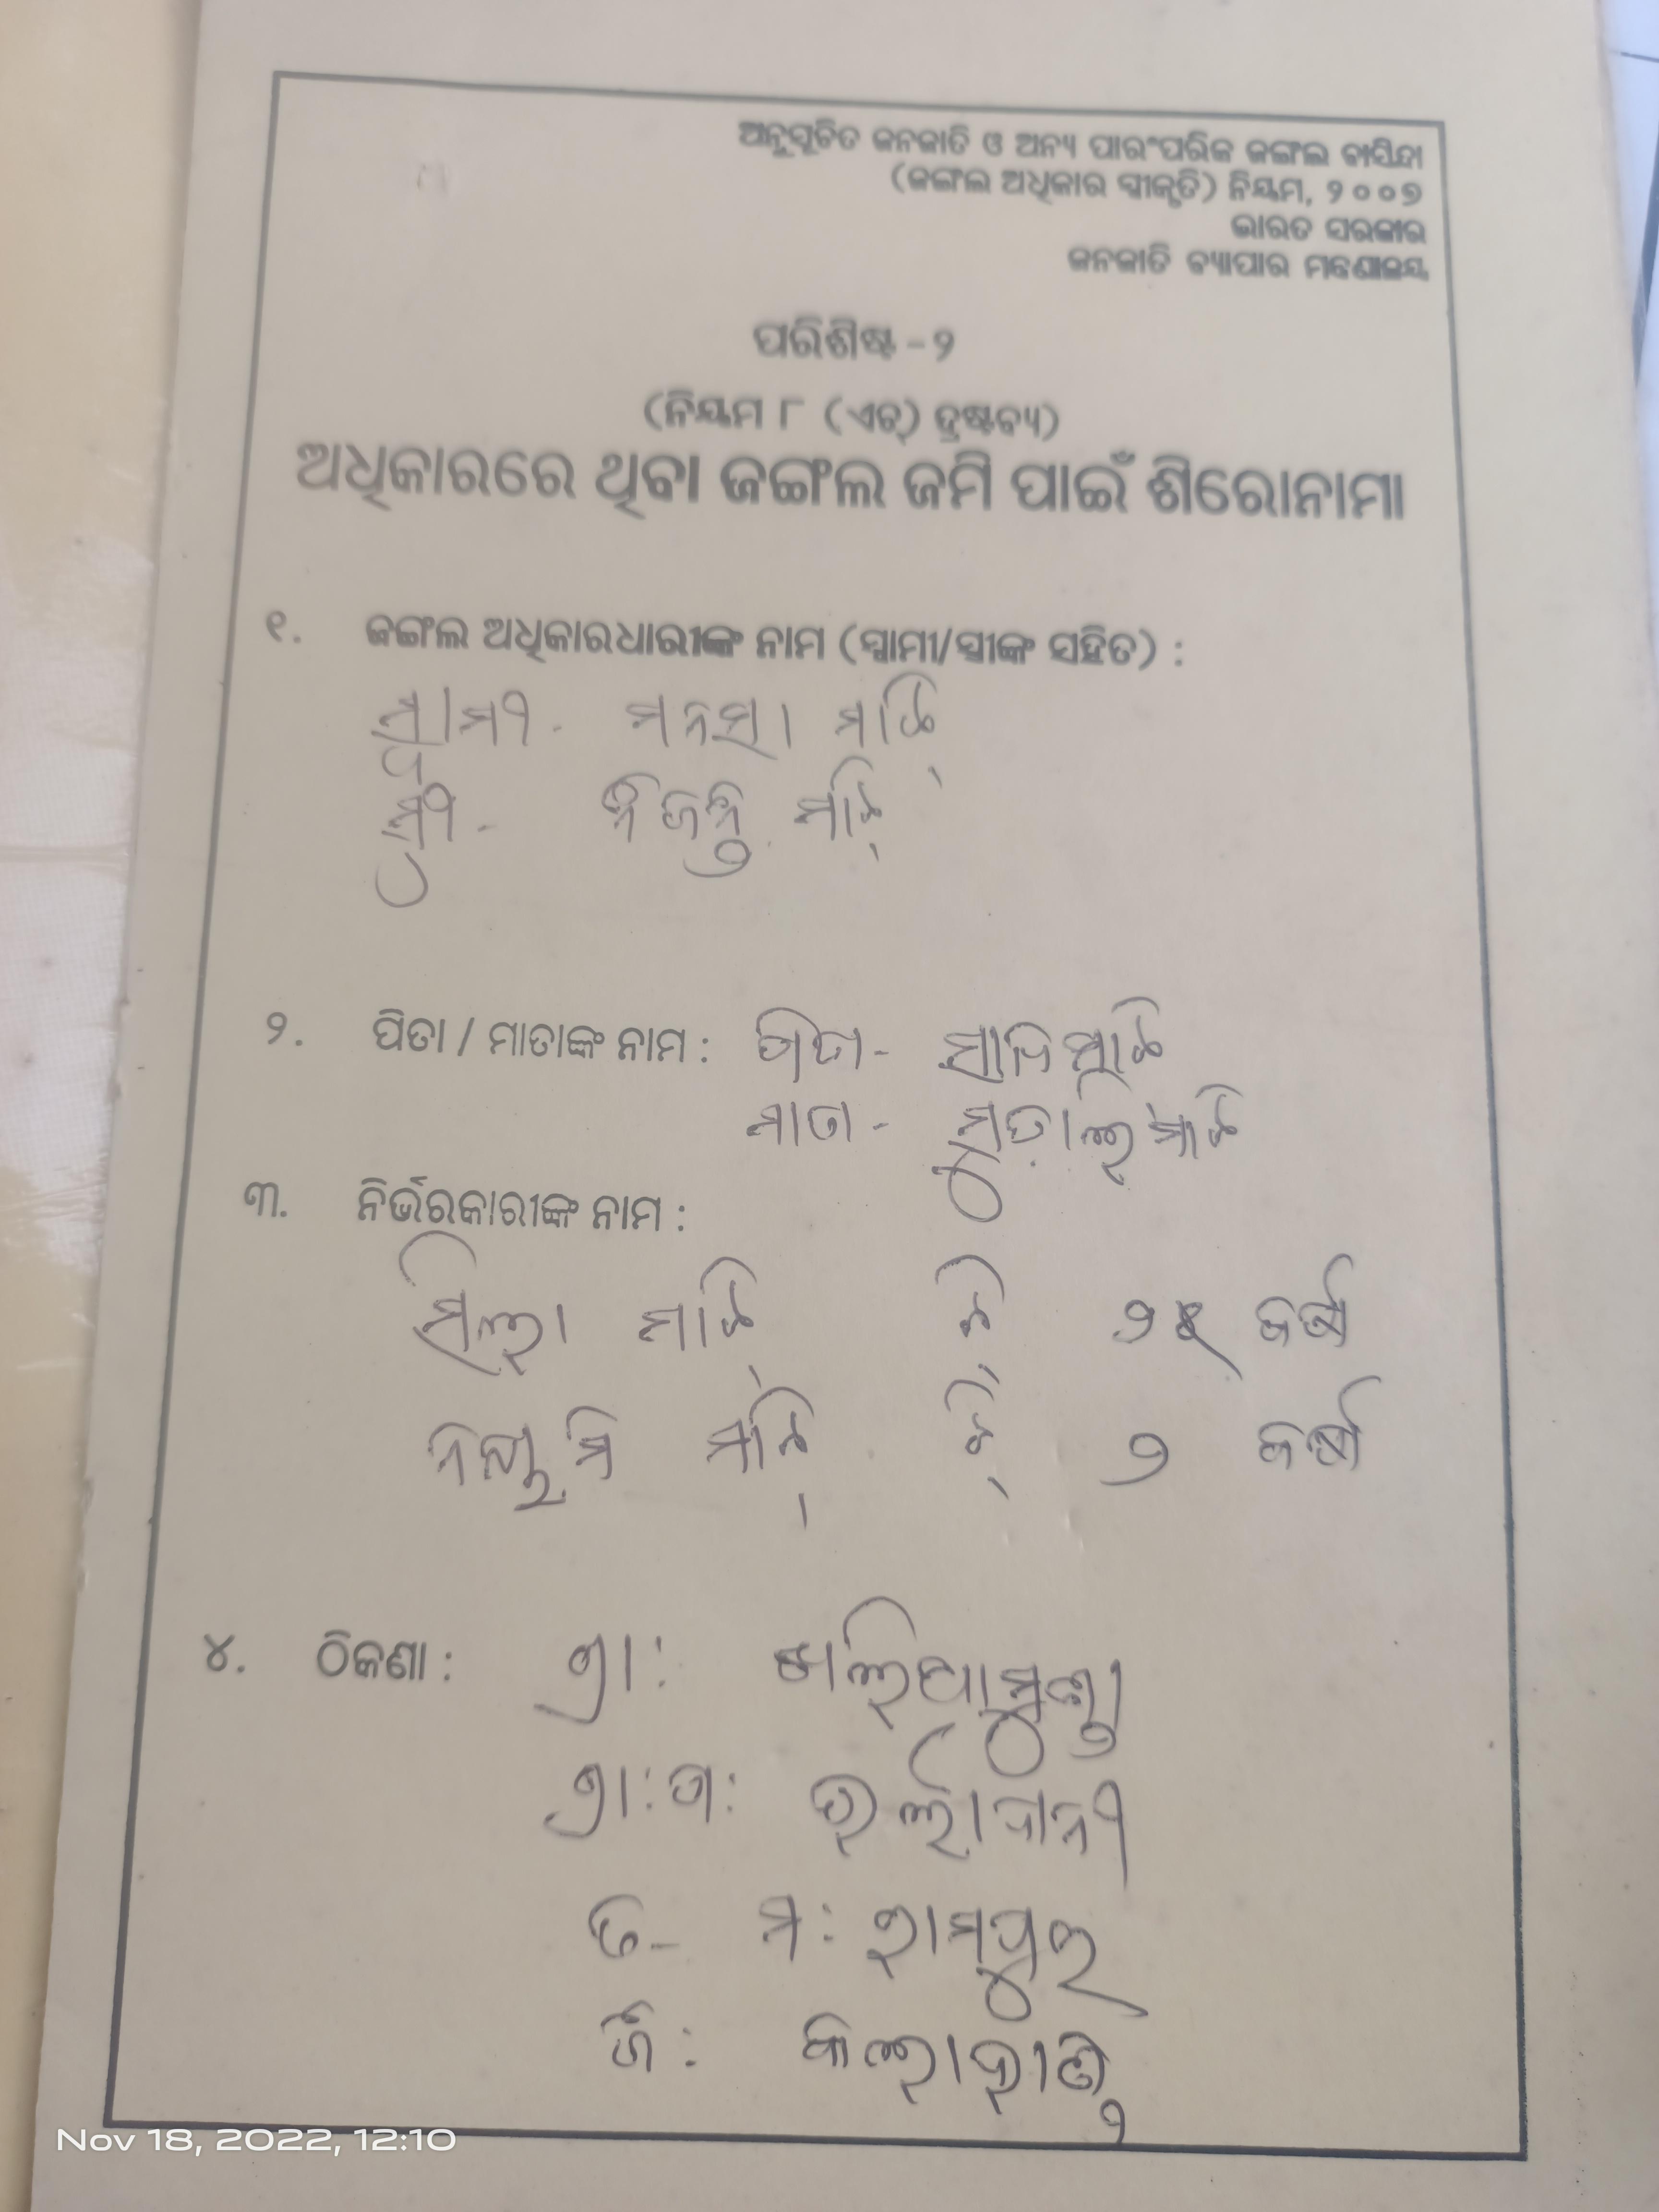 ଅନୁସୂଚିତ ଜନଜାତି ଓ ଅନ୍ୟ ପାରଂପରିକ ଜଙ୍ଗଲ ବାସିନ୍ଦା
(ଜଙ୍ଗଲ ଅଧିକାର ସ୍ୱୀକୃତି) ନିୟମ, ୨୦୦୭
ଭାରତ ସରକାର
ଜନଜାତି ବ୍ୟାପାର ମନ୍ତ୍ରଣାଳୟ
ପରିଶିଷ୍ଟ - ୨
(ନିୟମ ୮ (ଏଚ୍) ଦ୍ରଷ୍ଟବ୍ୟ)
ଅଧିକାରରେ ଥିବା ଜଙ୍ଗଲ ଜମି ପାଇଁ ଶିରୋନାମା
୧. ଜଙ୍ଗଲ ଅଧିକାରଧାରୀଙ୍କ ନାମ (ସ୍ୱାମୀ/ସ୍ତ୍ରୀଙ୍କ ସହିତ) :
ସ୍ୱାମୀ - ମନସା ମାଝି
ସ୍ତ୍ରୀ - ମାଝି
୨. ପିତା / ମାତାଙ୍କ ନାମ : ପିତା - ମାଝି
ମାତା - ମାଝି
୩. ନିର୍ଭରକାରୀଙ୍କ ନାମ :
ମାଝି ଝି ବର୍ଷ
ମାଝି ଝି ୭ ବର୍ଷ
୪. ଠିକଣା : ଗ୍ରା :
ଗ୍ରା : ପ :
ତ - ମ : ରାମପୁର
ଜି : କଲାହାଣ୍ଡି
Nov 18, 2022, 12:10